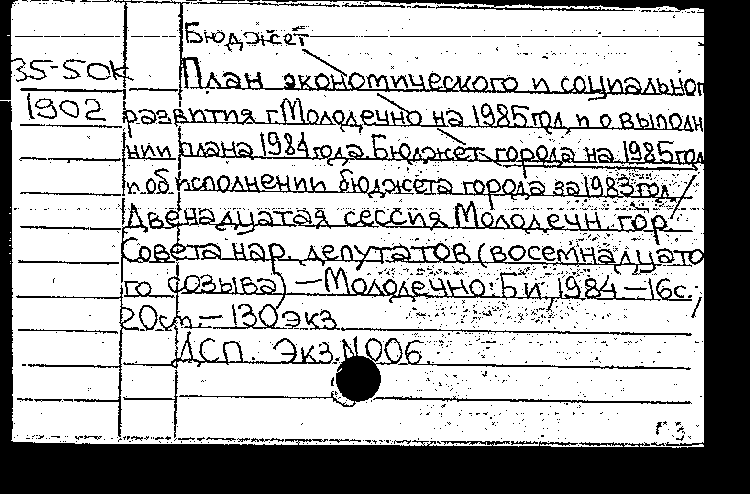 Бюджет
35-50К План экономического и социальног
1902 развития г.Молодечно на 1985год, и о выполн
нии плана 1984 года. Бюджет города на 1985год
и об исполнении бюджета города за 1983 год /
Двенадцатая сессия Молодечн. гор.
Совета нар. депутатов (восемнадцато
го созыва) — Молодечно: Б.и., 1984 — 16с.;
20см. — 130экз.
ДСП. Экз.N006.
г 3.